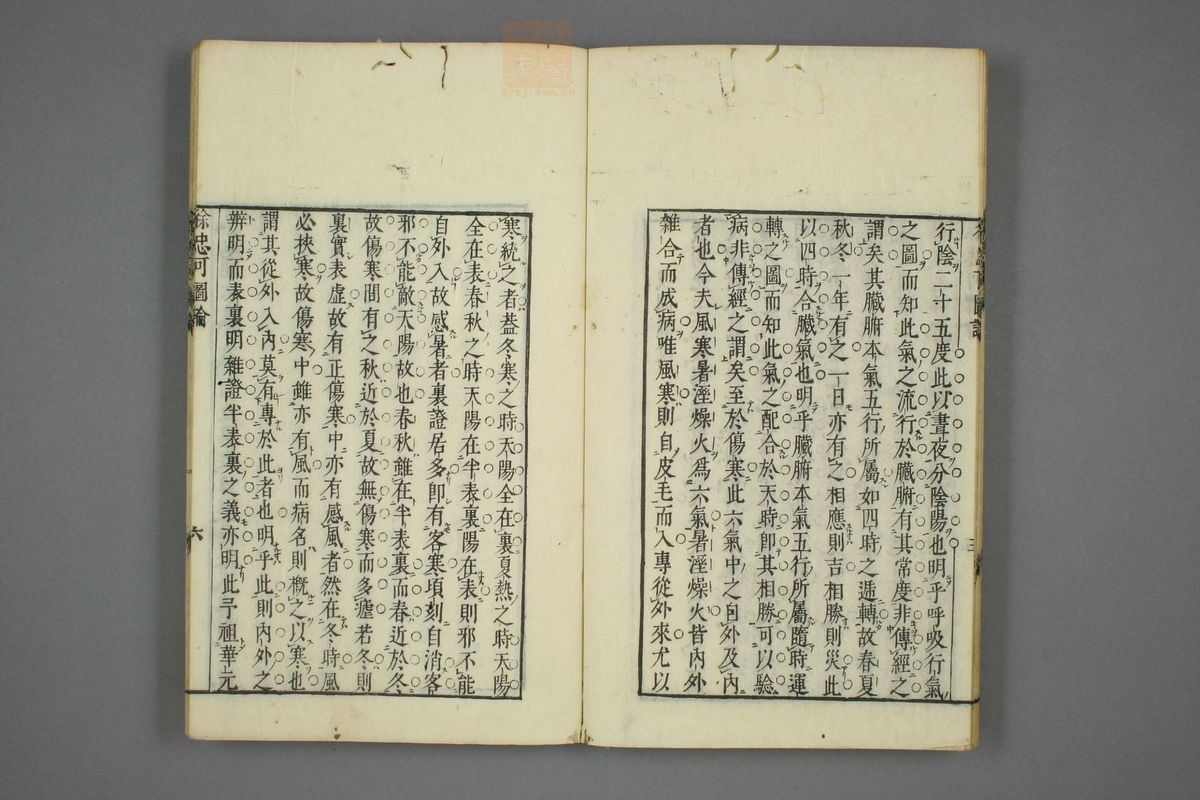 行陰二十五度此以晝夜分陰陽也明乎呼吸行氣
之圖而知此氣之流行於臟腑有其常度非傳經之
謂矣其臟腑本氣五行所屬如四時之遞轉故春夏
秋冬一年有之一日亦有之相應則吉相勝則災此
以四時合臟氣也明乎臟腑本氣五行所屬隨時運
轉之圖而知此氣之配合於天時卽其相勝可以驗
病非傳經之謂矣至於傷寒此六氣中之自外及內
者也今夫風寒暑溼燥火爲六氣暑溼燥火皆內外
雜合而成病唯風寒則自皮毛而入專從外來尤以
寒統之者葢冬寒之時天陽全在裏夏熱之時天陽
全在表春秋之時天陽在半表裏陽在表則邪不能
自外入故感暑者裏證居多卽有客寒頃刻自消客
邪不能敵天陽故也春秋雖在半表裏而春近於冬
故傷寒間有之秋近於夏故無傷寒而多瘧若冬則
裏實表虛故有正傷寒中亦有感風者然在冬時風
必挾寒故傷寒中雖亦有風而病名則槪之以寒也
謂其從外入內莫有專於此者也明乎此則內外之
辨明而表裏明雜證半表裏之義亦明此予祖華元
徐忠可圖論
六
zysj.com.cn